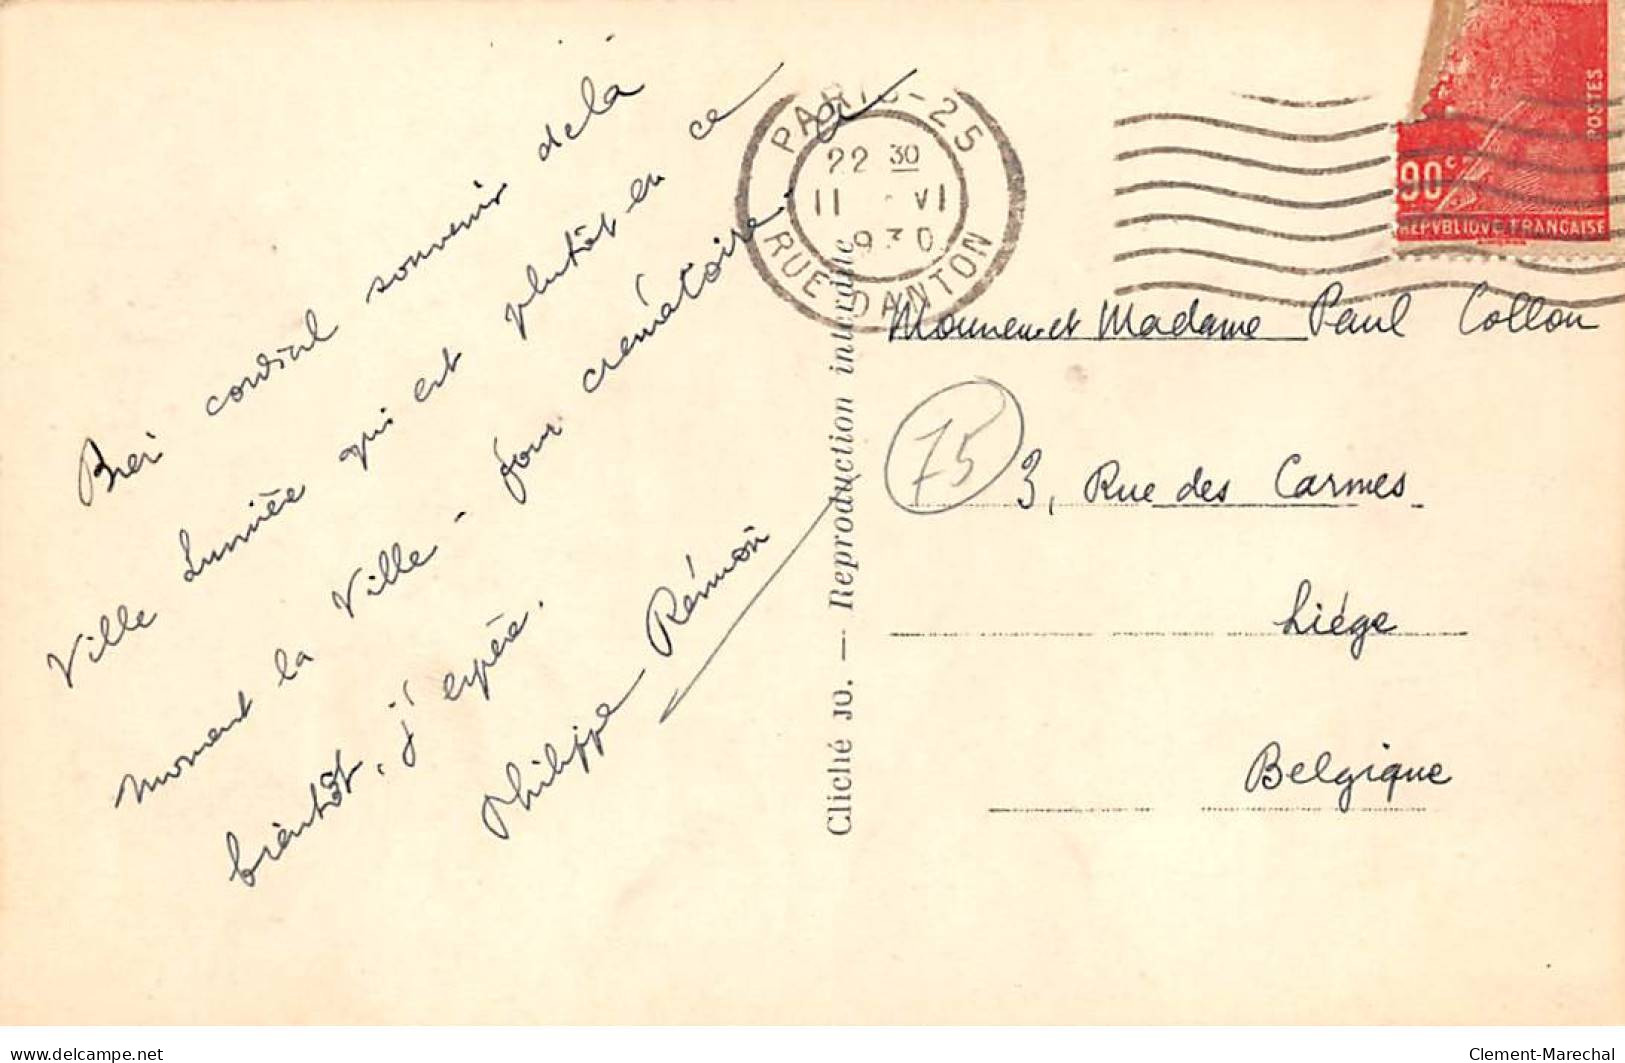 Bien cordial souvenir de la
Ville Lumière qui est plutôt en ce
moment la Ville - four crématoire. A
bientôt, j'espère.
Philippe Rémon
Cliché JO. — Reproduction interdite
PARIS-25
22 30
11 VI
1930
RUE DANTON
POSTES
90c
REPVBLIQVE FRANCAISE
Monsieur et Madame Paul Collon
75
3, Rue des Carmes
Liége
Belgique
delcampe.net
Clement-Marechal